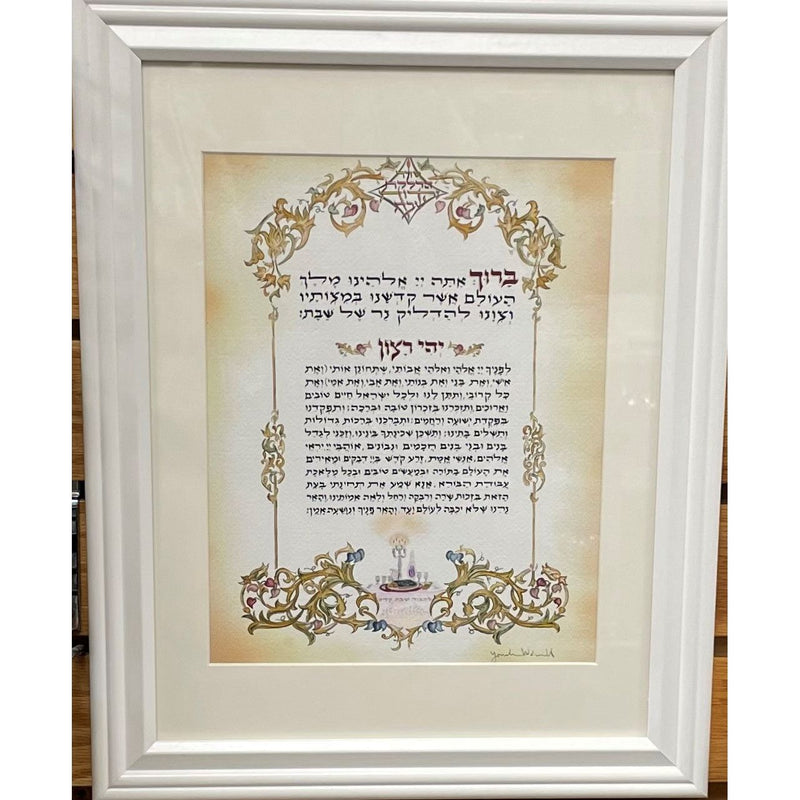 סדר
הדלקת
נרות
שבת
בָּרוּךְ אַתָּה יְיָ אֱלֹהֵינוּ מֶלֶךְ
הָעוֹלָם אֲשֶׁר קִדְּשָׁנוּ בְּמִצְוֹתָיו
וְצִוָּנוּ לְהַדְלִיק נֵר שֶׁל שַׁבָּת:
יהי רצון
לפניך יי אלהי ואלהי אבותי, שתחונן אותי (ואת
אישי, ואת בני ואת בנותי, ואת אבי, ואת אמי) ואת
כל קרובי, ותתן לנו ולכל ישראל חיים טובים
וארוכים, ותזכרנו בזכרון טובה וברכה; ותפקדנו
בפקדת ישועה ורחמים; ותברכנו ברכות גדולות
ותשלים בתינו; ותשכן שכינתך בינינו, וזכני לגדל
בנים ובני בנים חכמים ונבונים, אוהבי יי, יראי
אלהים, אנשי אמת, זרע קדש ביי דבקים ומאירים
את העולם בתורה ובמעשים טובים ובכל מלאכת
עבודת הבורא. אנא שמע את תחינתי בעת
הזאת בזכות שרה ורבקה ורחל ולאה אמותינו, והאר
נרנו שלא יכבה לעולם ועד, והאר פניך ונושעה אמן: